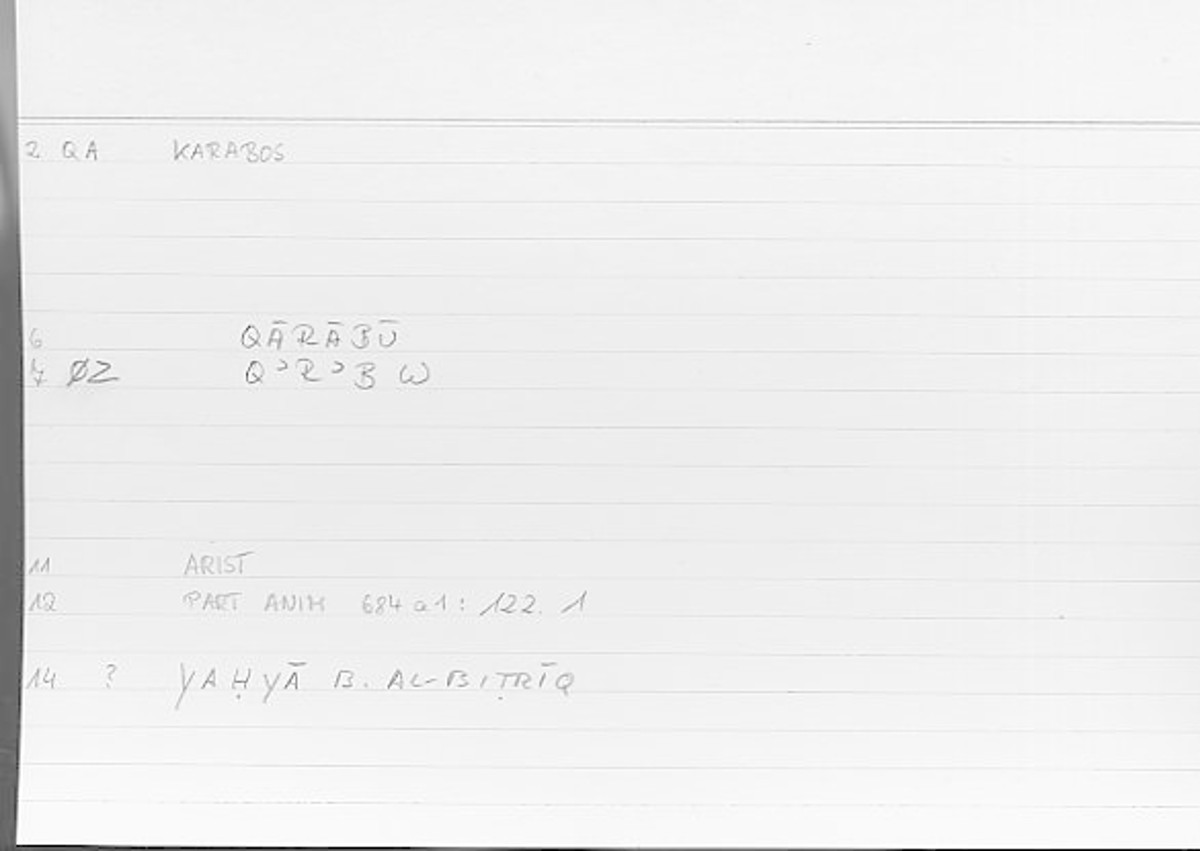 2 QA KARABOS
6 QĀRĀBŪ
7 ØZ QʾRʾB W
11 ARIST
12 PART ANIM 684 a1: 122. 1
14 ? YAḤYĀ B. AL-BIṬRĪQ